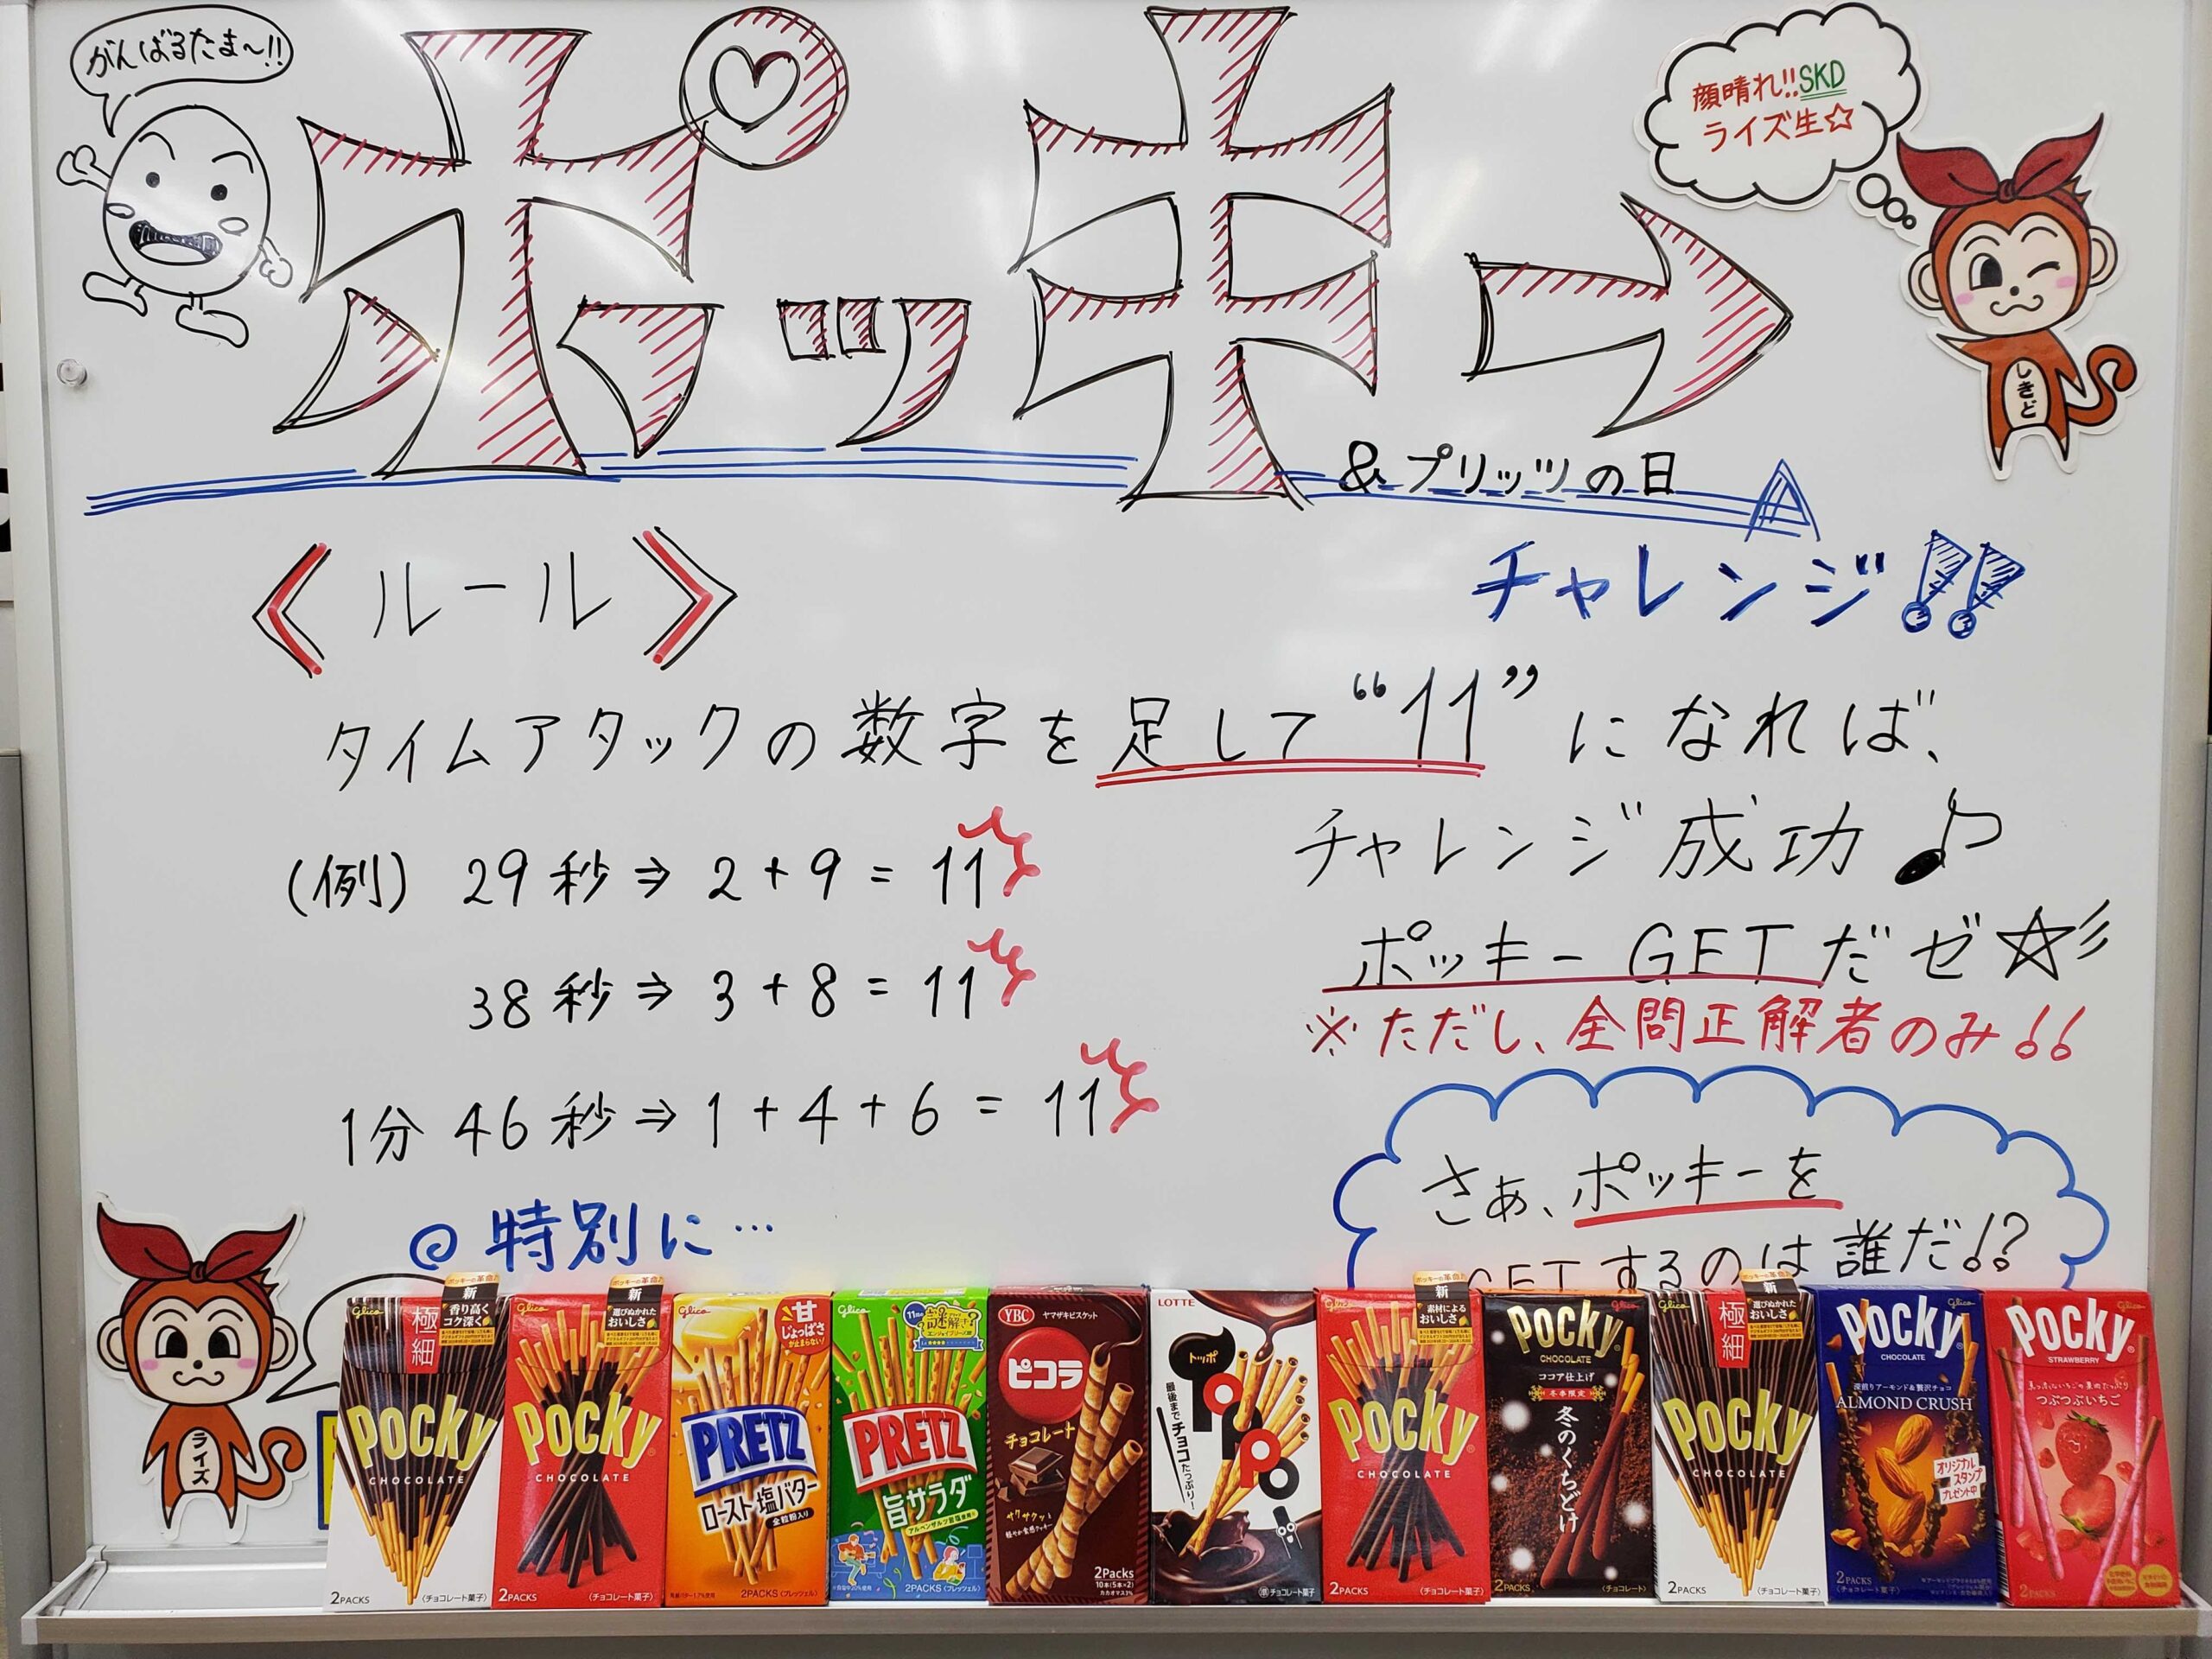 がんばるたま〜!!
顔晴れ!!SKD
ライズ生☆
ポッキー
しきど
&プリッツの日
チャレンジ!!
《ルール》
タイムアタックの数字を足して“11”になれば、
チャレンジ成功♪
(例) 29秒⇒2+9=11
38秒⇒3+8=11
1分46秒⇒1+4+6=11
ポッキーGETだゼ☆
※ただし、全問正解者のみ!!
さぁ、ポッキーを
GETするのは誰だ!?
◎特別に…
ライズ
Glico
極細
新
香り高く
コク深く
Pocky
CHOCOLATE
2PACKS
(チョコレート菓子)
新
選びぬかれた
おいしさ
Pocky
CHOCOLATE
2PACKS
(チョコレート菓子)
Glico
甘
じょっぱさ
が止まらない!
PRETZ
ロースト塩バター
全粒粉入り
2PACKS(プレッツェル)
Glico
謎解き?
PRETZ
旨サラダ
2PACKS(プレッツェル)
YBC
ヤマザキビスケット
ピコラ
チョコレート
サクサクッと
2Packs
10本(5本×2)
LOTTE
トッポ
TOPPO
最後までチョコたっぷり!
チョコレート菓子
Glico
新
素材による
おいしさ
Pocky
CHOCOLATE
2PACKS
(チョコレート菓子)
Pocky
Glico
CHOCOLATE
ココア仕上げ
冬季限定
冬のくちどけ
2PACKS
(チョコレート)
Glico
極細
新
選びぬかれた
おいしさ
Pocky
CHOCOLATE
2PACKS
(チョコレート菓子)
Pocky
Glico
CHOCOLATE
深煎りアーモンド&贅沢チョコ
ALMOND CRUSH
オリジナル
スタンプ
プレゼント中
2PACKS
(チョコレート菓子)
Pocky
Glico
STRAWBERRY
つぶつぶいちご
2PACKS